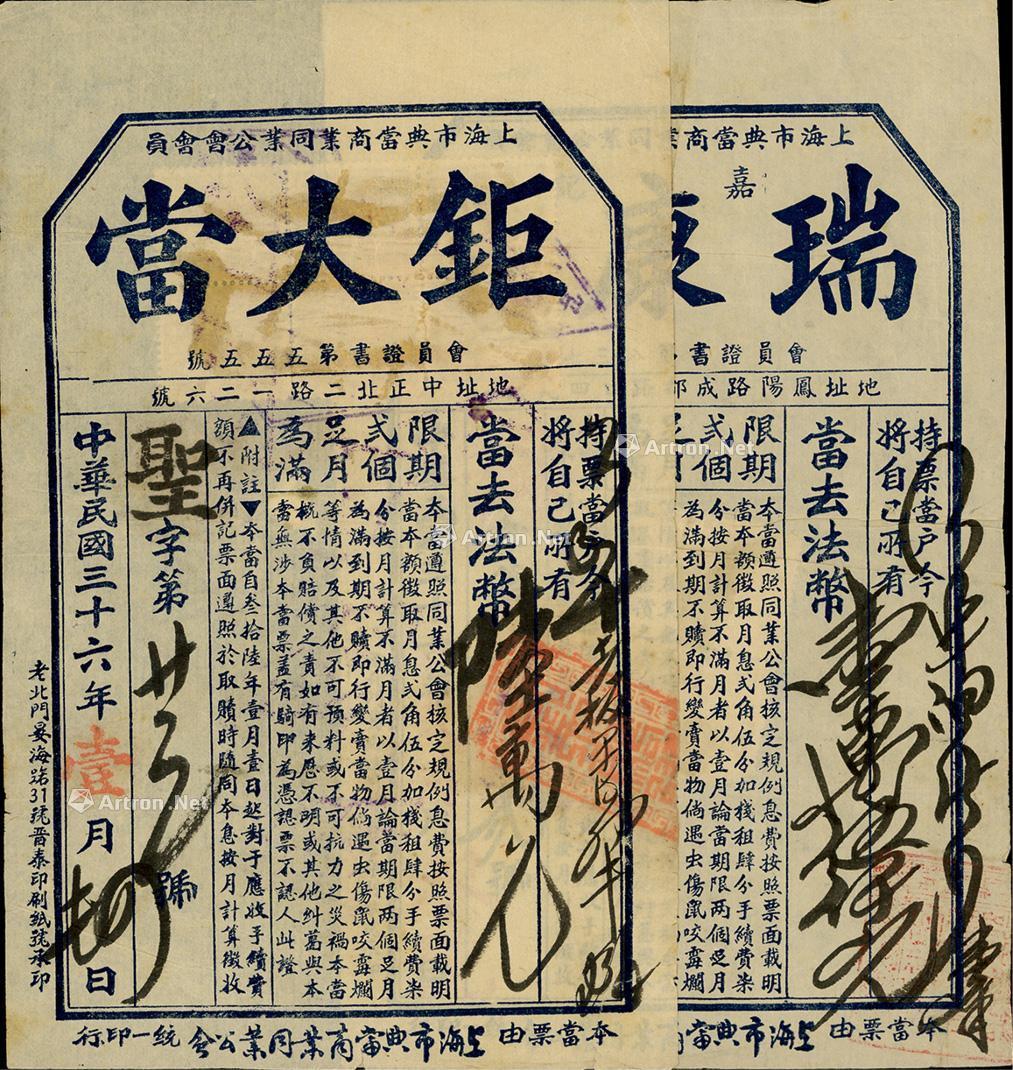 上海市典當商業同業公會會員
鉅大當
會員證書第五五五號
地址中正北二路一二六號
持票當戶今
將自己所有
當去法幣
陸萬元
限期
弍個
足月
為滿
本當遵照同業公會核定規例息費按照票面載明
當本額徵取月息弍角伍分加棧租肆分手續費柒
分按月計算不滿月者以壹月論當期限兩個足月
為滿到期不贖即行變賣當物倘遇虫傷鼠咬霉爛
等情以及其他不可預料或不可抗力之災禍本當
概不負賠償之責如有來歷不明或其他糾葛與本
當無涉本當票蓋有騎印為憑認票不認人此證
▲附註▼本當自叁拾陸年壹月壹日起對于應收手續費
額不再併記票面遵照於取贖時隨同本息按月計算徵收
聖字第
號
中華民國三十六年壹月
日
老北門晏海路31號晋泰印刷紙號承印
本當票由上海市典當商業同業公會統一印行
上海市典當商業
嘉
瑞康
會員證書
地址鳳陽路成都
持票當戶今
將自己所有
當去法幣
限期
弍個
足月
本當遵照同業公會核定規例息費按照票面載明
當本額徵取月息弍角伍分加棧租肆分手續費柒
分按月計算不滿月者以壹月論當期限兩個足月
為滿到期不贖即行變賣當物倘遇虫傷鼠咬霉爛
本當票由上海市典當商業同
Artron.Net
Artron.Net
Artron.Net
Artron.Net
Artron.Net